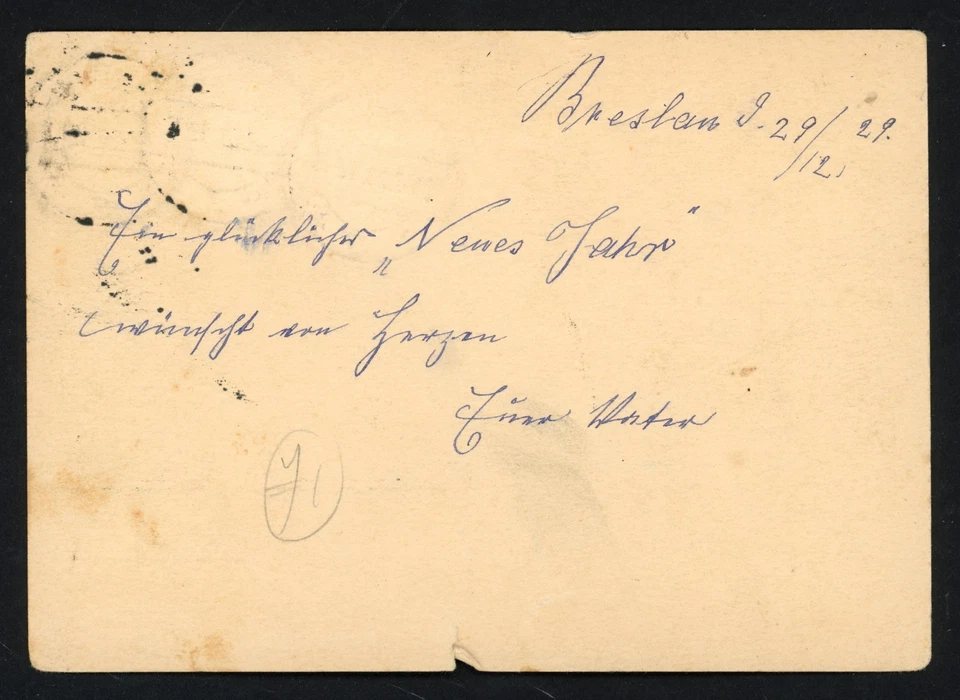 Breslau I. 29/12. 29.
Ein glückliches
„Neues Jahr"
wünscht von Herzen
Euer Vater